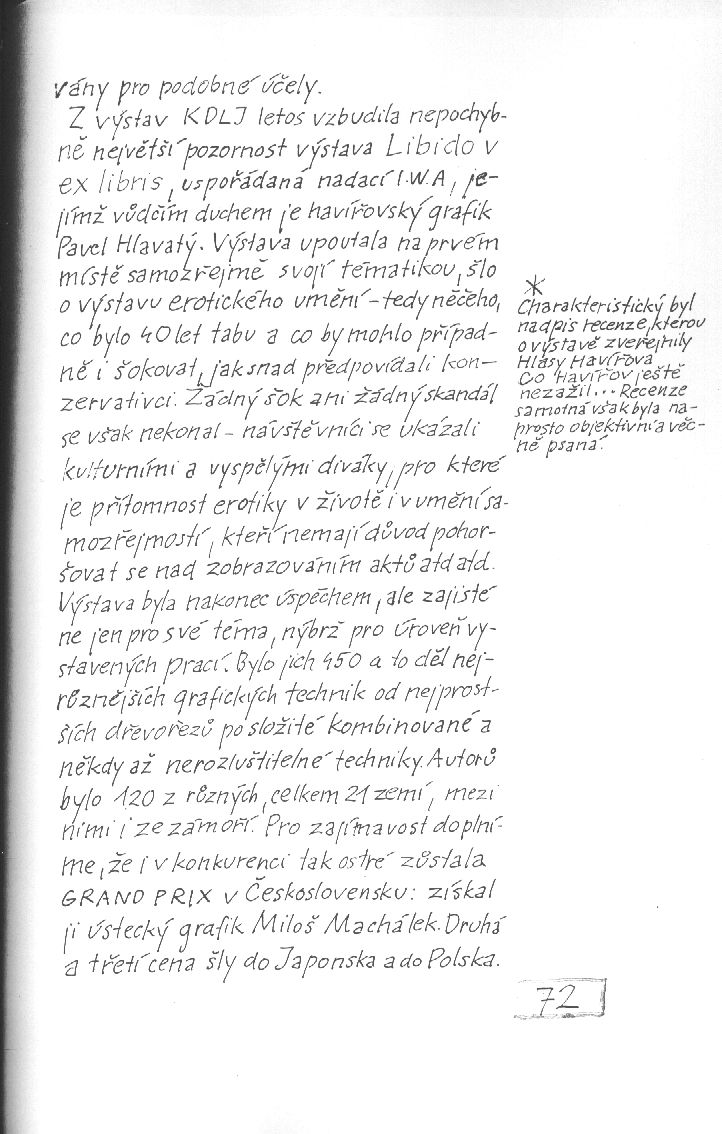 vány pro podobné účely.
Z výstav KDLJ letos vzbudila nepochyb-
ně největší pozornost výstava Libido v
ex libris, uspořádaná nadací I.W.A, je-
jímž vůdčím duchem je havířovský grafik
Pavel Hlavatý. Výstava upoutala na prvém
místě samozřejmě svojí tématikou, šlo
o výstavu erotického umění - tedy něčeho,
co bylo 40 let tabu a co by mohlo případ-
ně i šokovat, jak snad předpovídali kon-
zervativci. Žádný šok ani žádný skandál
se však nekonal - návštěvníci se ukázali
kulturními a vyspělými diváky, pro které
je přítomnost erotiky v životě i v umění sa-
mozřejmostí, kteří nemají důvod pohor-
šovat se nad zobrazováním aktů atd atd.
Výstava byla nakonec úspěchem, ale zajisté
ne jen pro své téma, nýbrž pro úroveň vy-
stavených prací. Bylo jich 450 a to děl nej-
různějších grafických technik od nejprost-
ších dřevořezů po složité kombinované a
někdy až nerozluštitelné techniky. Autorů
bylo 120 z různých, celkem 21 zemí, mezi
nimi i ze zámoří. Pro zajímavost doplní-
me, že i v konkurenci tak ostré zůstala
GRAND PRIX v Československu: získal
ji ústecký grafik Miloš Machálek. Druhá
a třetí cena šly do Japonska a do Polska.
*
Charakteristický byl
nadpis recenze, kterou
o výstavě zveřejnily
Hlasy Havířova
Co Havířov ještě
nezažil... Recenze
samotná však byla na-
prosto objektivní a věc-
ně psaná.
72